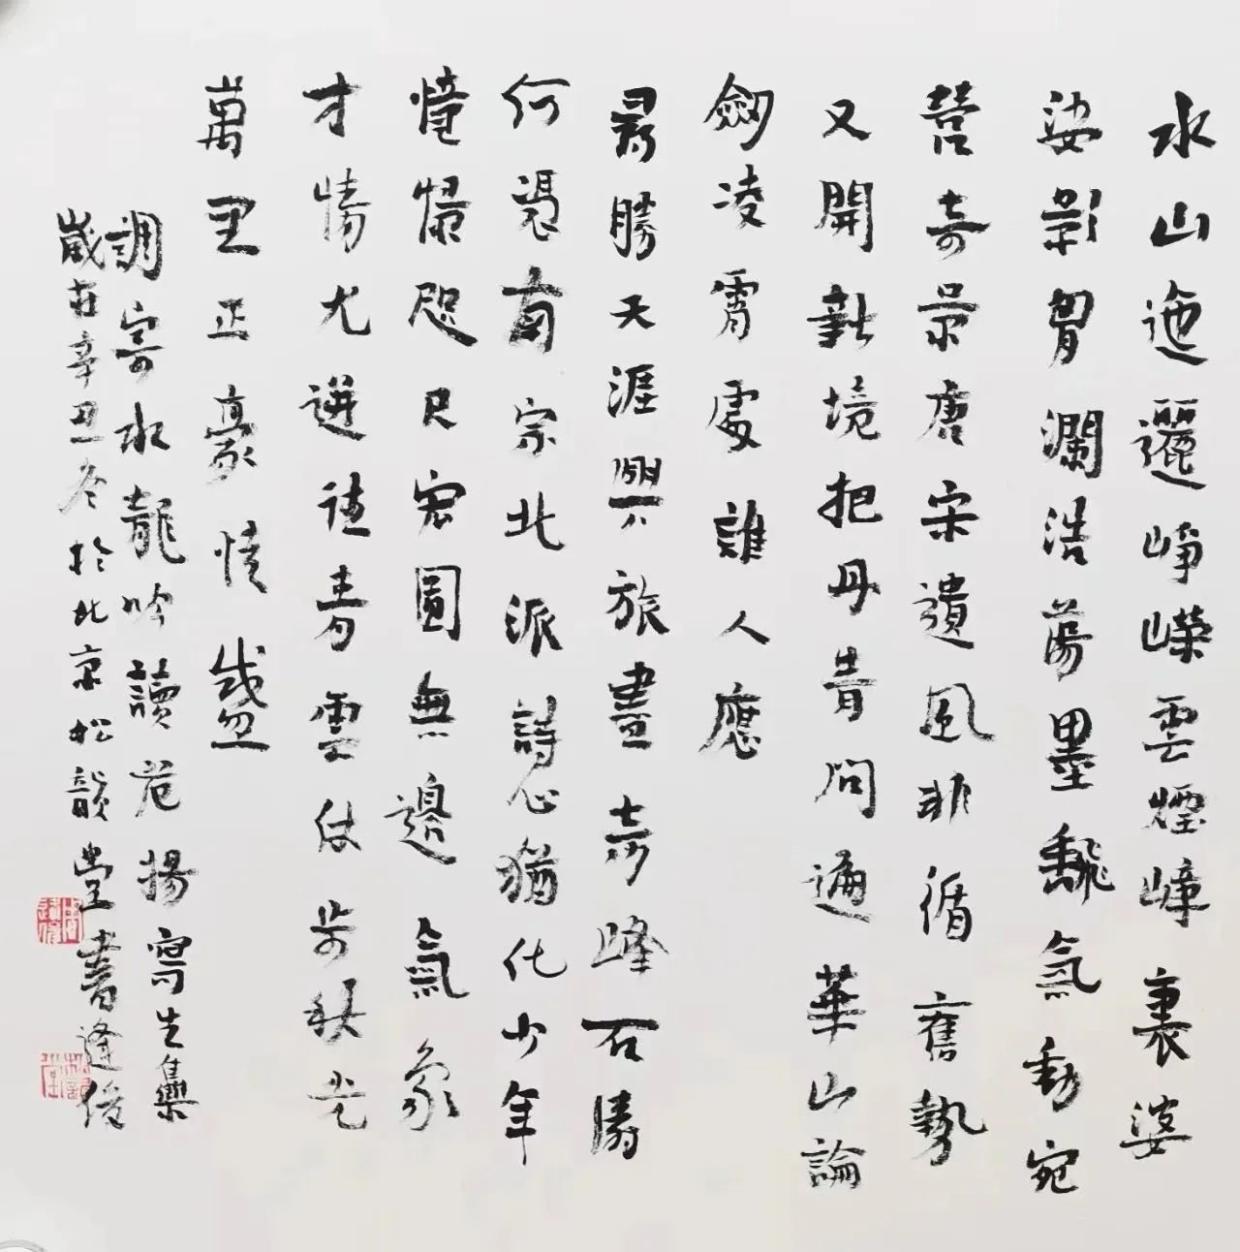 水山迤邐崢嶸雲煙嶂裏婆
娑影胷瀾浩蕩墨飜氣動宛
營奇景唐宋遺風非循舊勢
又開新境把丹青問遍華山論
劍凌霄處誰人應
尋勝天涯興旅畫奇峰石濤
何南宗北派詩心猶化少年
憧憬咫尺宏圖無邊氣象
才情尤迸青雲仗步秋光
萬里正豪情盛
調寄水龍吟讀范揚寫生集
歲在辛丑冬於北京松韻堂書逢俊